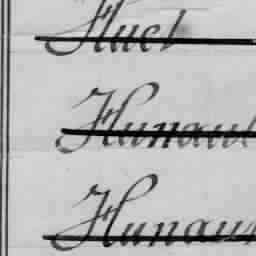 Huet
Hunault
Hunault